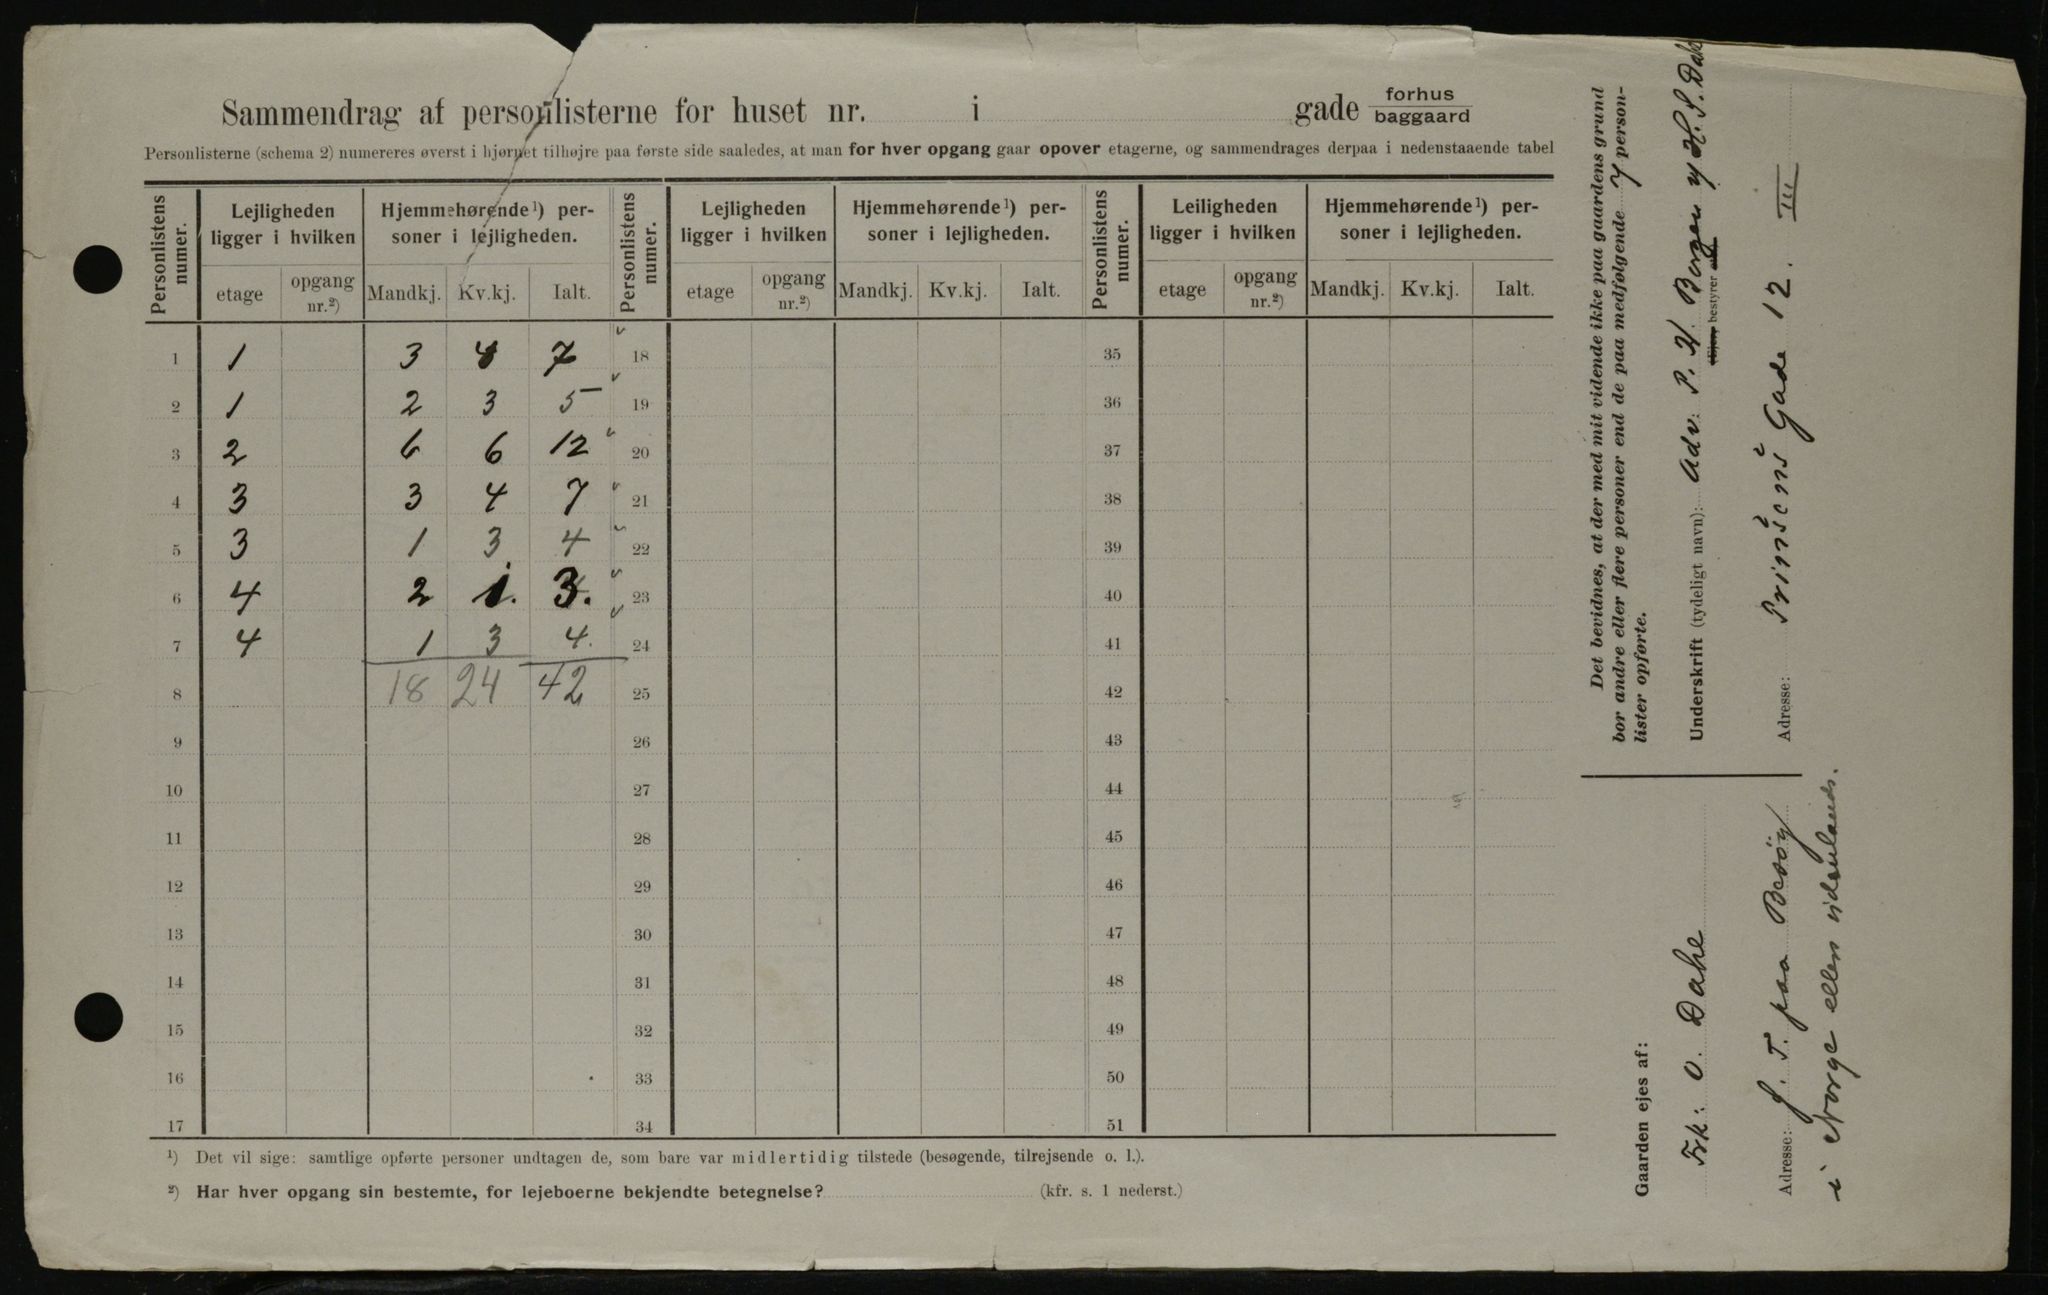 Sammendrag af personlisterne for huset nr. i gade forhus baggaard
Personlisterne (schema 2) numereres øverst i hjørnet tilhøjre paa første side saaledes, at man for hver opgang gaar opover etagerne, og sammendrages derpaa i nedenstaaende tabel
Personlistens numer. Lejligheden ligger i hvilken Hjemmehørende¹) personer i lejligheden. Personlistens numer. Lejligheden ligger i hvilken Hjemmehørende¹) personer i lejligheden. Personlistens numer. Leiligheden ligger i hvilken Hjemmehørende¹) personer i lejligheden.
etage opgang nr.²) Mandkj. Kv.kj. Ialt. etage opgang nr.²) Mandkj. Kv.kj. Ialt. etage opgang nr.²) Mandkj. Kv.kj. Ialt.
1 1 3 4 7 18 35
2 1 2 3 5 19 36
3 2 6 6 12 20 37
4 3 3 4 7 21 38
5 3 1 3 4 22 39
6 4 2 1. 3. 23 40
7 4 1 3 4. 24 41
8 18 24 42 25 42
9 26 43
10 27 44
11 28 45
12 29 46
13 30 47
14 31 48
15 32 49
16 33 50
17 34 51
¹) Det vil sige: samtlige opførte personer undtagen de, som bare var midlertidig tilstede (besøgende, tilrejsende o. l.).
²) Har hver opgang sin bestemte, for lejeboerne bekjendte betegnelse? (kfr. s. 1 nederst.)
Det bevidnes, at der med mit vidende ikke paa gaardens grund
bor andre eller flere personer end de paa medfølgende 7 person-
lister opførte.
Underskrift (tydeligt navn): Adv. P. H. Borgen H. S. Dahl
bestyrer
Adresse: Prinsens Gade 12. III
Gaarden ejes af:
Frk: O. Dahl
Adresse: f. T. paa Besøg
i Norge eller udenlands.